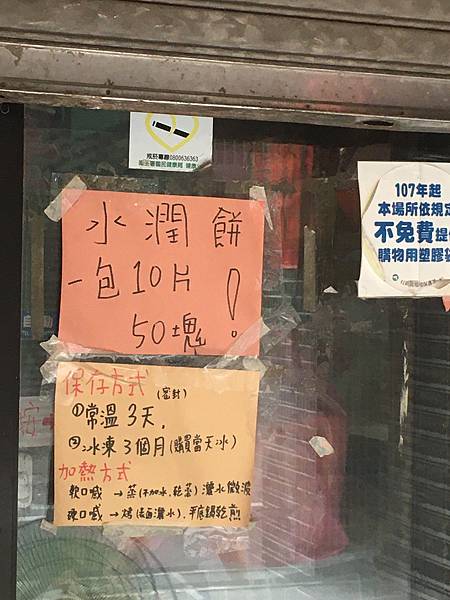 戒菸專線0800636363
水潤餅
一包10片!
50塊
保存方式
(密封)
①常溫3天.
②冰凍3個月(購買當天冰)
加熱方式
軟口感→蒸(不加水.乾蒸)灑水微波
硬口感→烤(表面灑水).平底鍋乾煎
107年起
本場所依規定
不免費提
購物用塑膠袋
自動
按